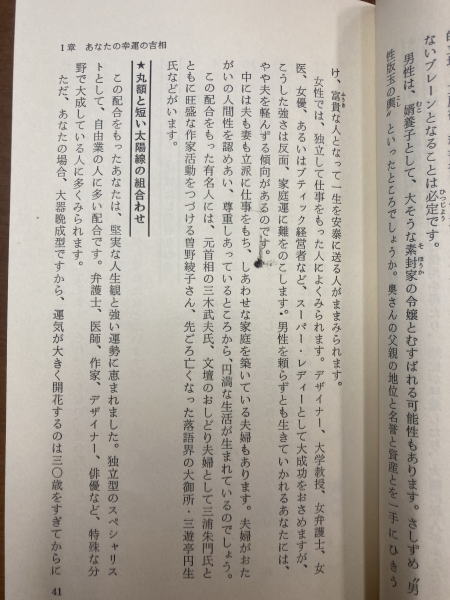 ないブレーンとなることは必定です。
男性は、婿養子として、大そうな素封家の令嬢とむすばれる可能性もあります。さしずめ〝男
性版玉の輿〟といったところでしょうか。奥さんの父親の地位と名誉と資産とを一手にひきう
け、富貴な人となって一生を安泰に送る人がままみられます。
女性では、独立して仕事をもった人によくみられます。デザイナー、大学教授、女弁護士、女
医、女優、あるいはブティック経営者など、スーパー・レディーとして大成功をおさめますが、
こうした強さは反面、家庭運に難をのこします。男性を頼らずとも生きていかれるあなたには、
やや夫を軽んずる傾向があるのです。
中には夫も妻も立派に仕事をもち、しあわせな家庭を築いている夫婦もあります。夫婦がおた
がいの人間性を認めあい、尊重しあっているところから、円満な生活が生まれているのでしょう。
この配合をもった有名人には、元首相の三木武夫氏、文壇のおしどり夫婦として三浦朱門氏と
ともに旺盛な作家活動をつづける曽野綾子さん、先ごろ亡くなった落語界の大御所・三遊亭円生
氏などがいます。
★丸額と短い太陽線の組合わせ
この配合をもったあなたは、堅実な人生観と強い運勢に恵まれました。独立型のスペシャリス
トとして、自由業の人に多い配合です。弁護士、医師、作家、デザイナー、俳優など、特殊な分
野で大成している人に多くみられます。
ただ、あなたの場合、大器晩成型ですから、運気が大きく開花するのは三〇歳をすぎてからに
1章 あなたの幸運の吉相
41